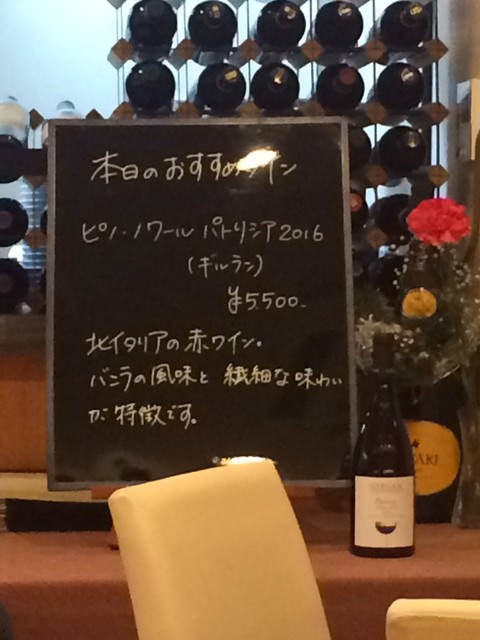 本日のおすすめワイン
ピノ・ノワール パトリシア2016
(ギルラン)
¥5,500-
北イタリアの赤ワイン。
バニラの風味と繊細な味わい
が特徴です。